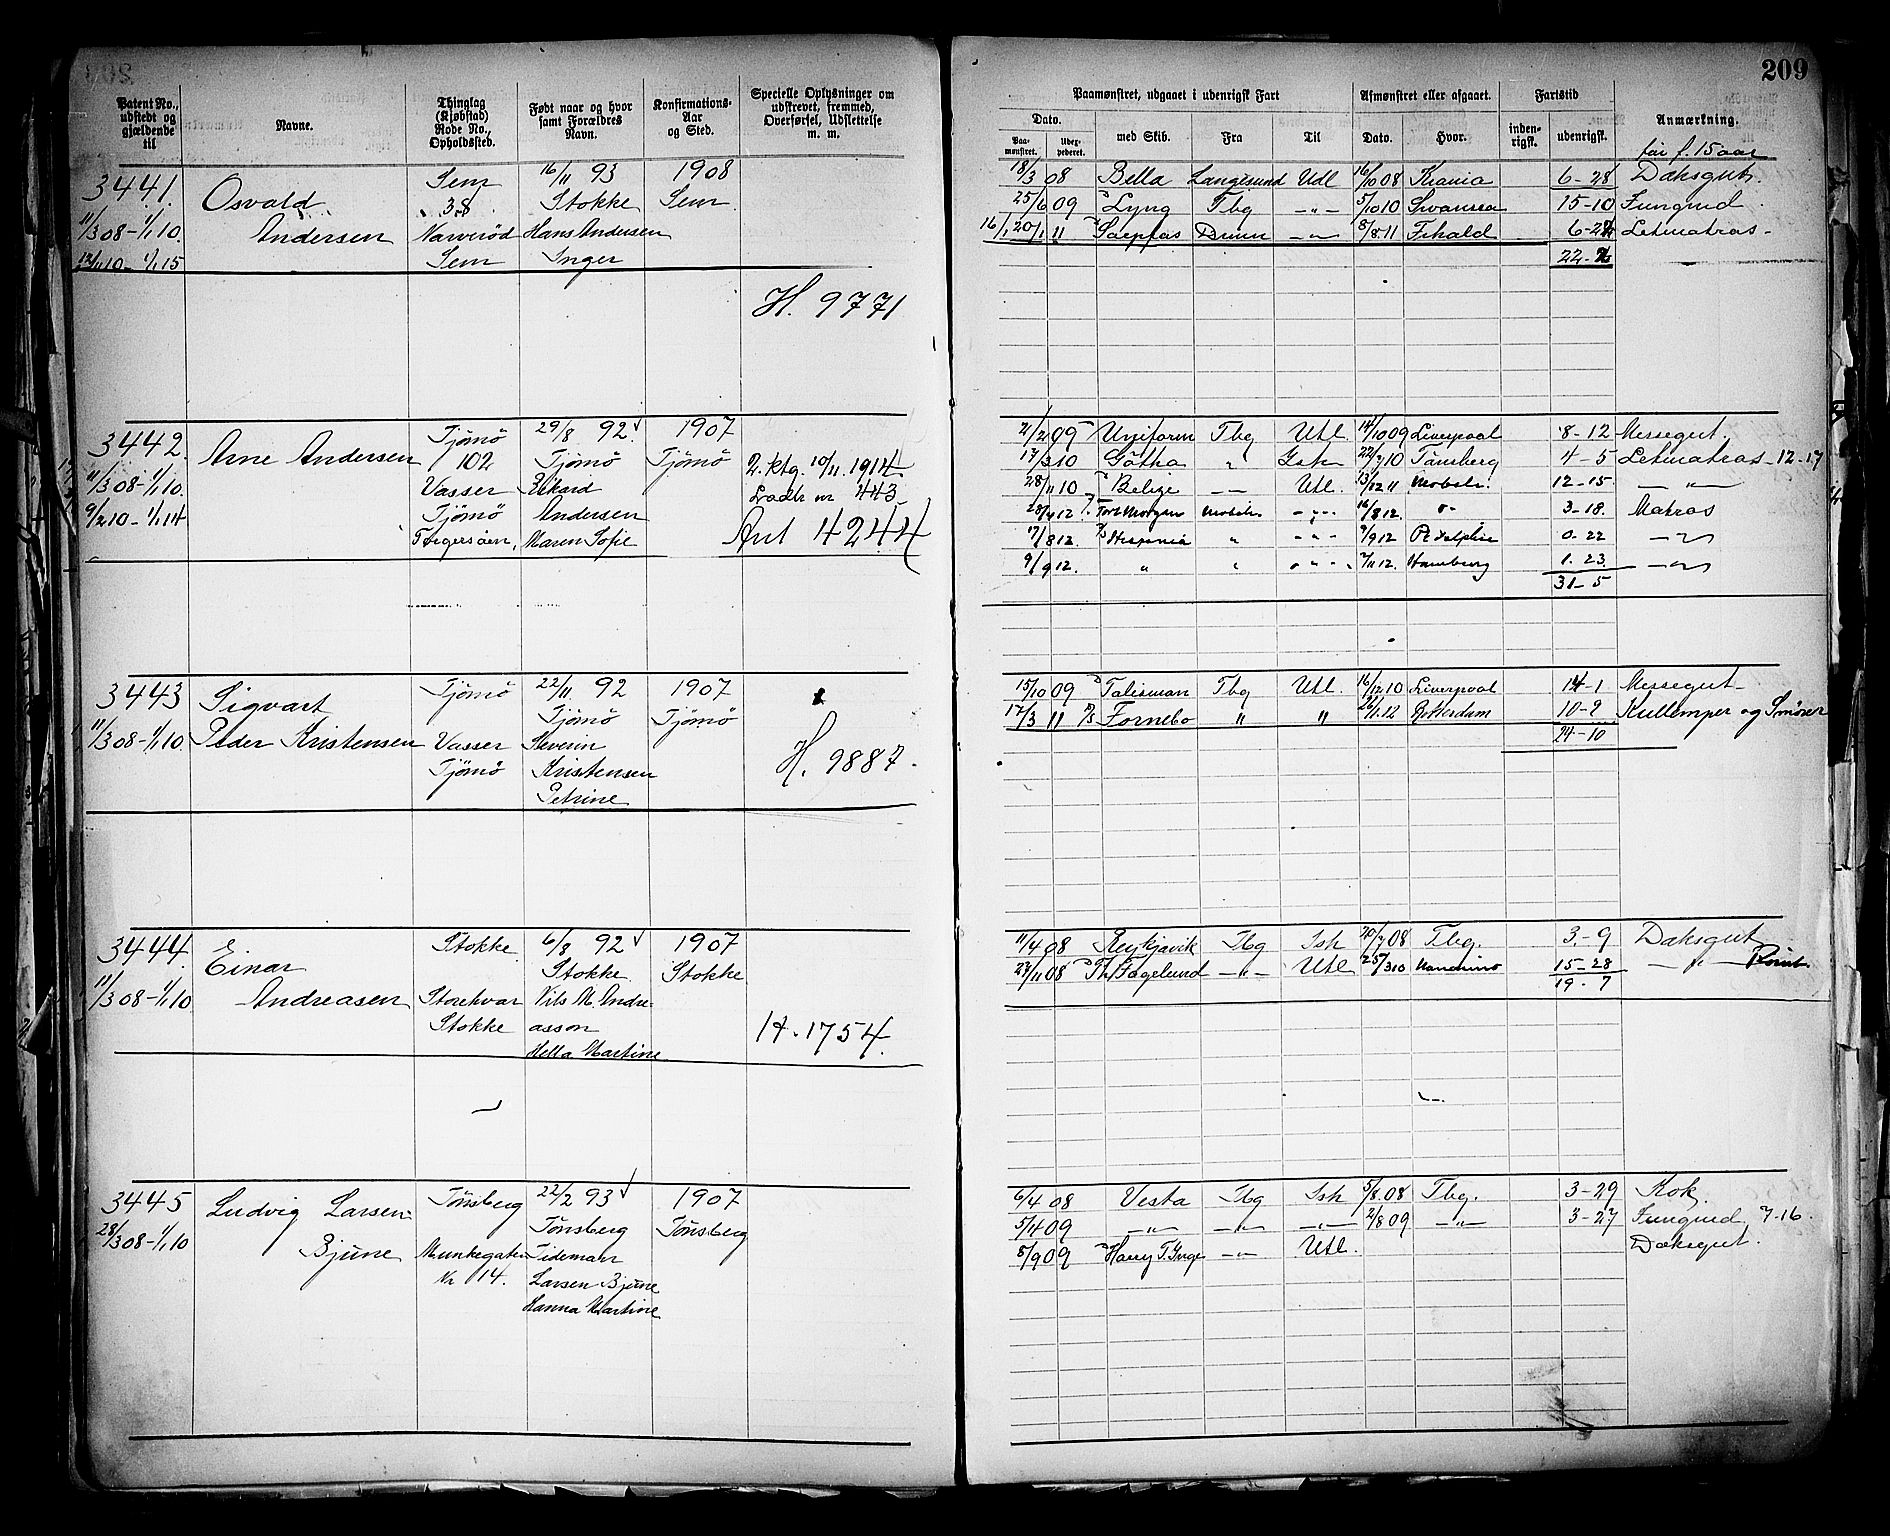 209
Patent No., udstedt og gjældende til
Navne.
Thinglag (Kjøbstad) Rode No., Opholdssted.
Født naar og hvor samt Forældres Navn.
Konfirmations-Aar og Sted.
Specielle Oplysninger om udskrevet, fremmed, Overførsel, Udslettelse m. m.
Paamønstret, udgaaet i udenrigsk Fart
Afmønstret eller afgaaet.
Fartstid
Anmærkning.
Dato.
Paa-mønstret.
med Skib.
Fra
Til
Dato.
Hvor.
inden-rigsk.
udenrigsk.
før f. 15 aar
3441.
11/3 08 - 1/1 10.
12/11 10 - 1/1 15
Osvald
Andersen
Sem
38
Narverød
Sem
16/11 93
Stokke
Hans Andersen
Inger
1908
Sem
H. 9771
18/3 08 Bella Langesund Udl 16/10 08 Krania 6-28 Dæksgut.
25/6 09 Lyng Tbg -"- 5/10 10 Swansea 15-10 Jungmd.
20/1 11 -"- 8/8 11 Frhald Letmatros-
3442.
11/3 08 - 1/1 10.
9/2 10 - 1/1 14
Arne Andersen
Tjömö
102
Vasser
Tjömö
29/8 92
Tjömö
Rikard
Andersen
Maren Sofie
1907
Tjömö
10/11. 1914
443
Ant 4244
2/2 09 Uniform Tbg Utl. 14/10 09 Liverpool 8-12 Messegut.
17/3 10 Götha " 22/7 10 Tönsberg 4-5 Letmatros-12-17
28/11 10 Belize -"- Utl. 13/12 11 Mobile. 12-15 -"-
28/4 12 Fort Morgan Mobile -"- 16/8 12. 3-18. Matros
17/8 12 Hispania " -"- 9/9 12 0-22 -"-
9/9 12. " " -"- 7/11 12. Hamburg 1.23. -"-
31-5
3443
11/3 08 - 1/1 10
Sigvart
Peder Kristensen
Tjömö
Vasser
Tjömö
22/11 92
Tjömö
Severin
Kristensen
Petrine
1907
Tjömö
H. 9887.
15/10 09 Talisman Tbg Utl. 16/12 10 Liverpool 14-1 Messegut-
17/3 11 Fornebo " " 26/1 12 Rotterdam 10-9 Kullemper og Smörer
24-10
3444.
11/3 08 - 1/1 10
Einar
Andreasen
Stokke
Storehvar
Stokke
6/8 92
Stokke
Nils M. Andre-
asson
Hella Martine
1907
Stokke
H. 1754.
11/4 08 Reykjavik Tbg Ish 20/7 08 Tbg. 3-9 Dæksgut
27/11 08 Fagelund -"- Utl 25/3 10 15-28 -"-
19-7
3445
28/3 08 - 1/1 10
Ludvig Larsen-
Bjune
Tönsberg
Munkegaten
Nr 14.
22/2 93
Tönsberg
Tideman
Larsen Bjune
Hanna Martine
1907
Tönsberg
6/4 08 Vesta Tbg Ish 5/8 08 Tbg. 3-29 Kok.
5/4 09 -"- -"- -"- 2/8 09 -"- 3-27 Jungmd, 7-16.
8/9 09 Harry T. Inge -"- Utl. Dæksgut.